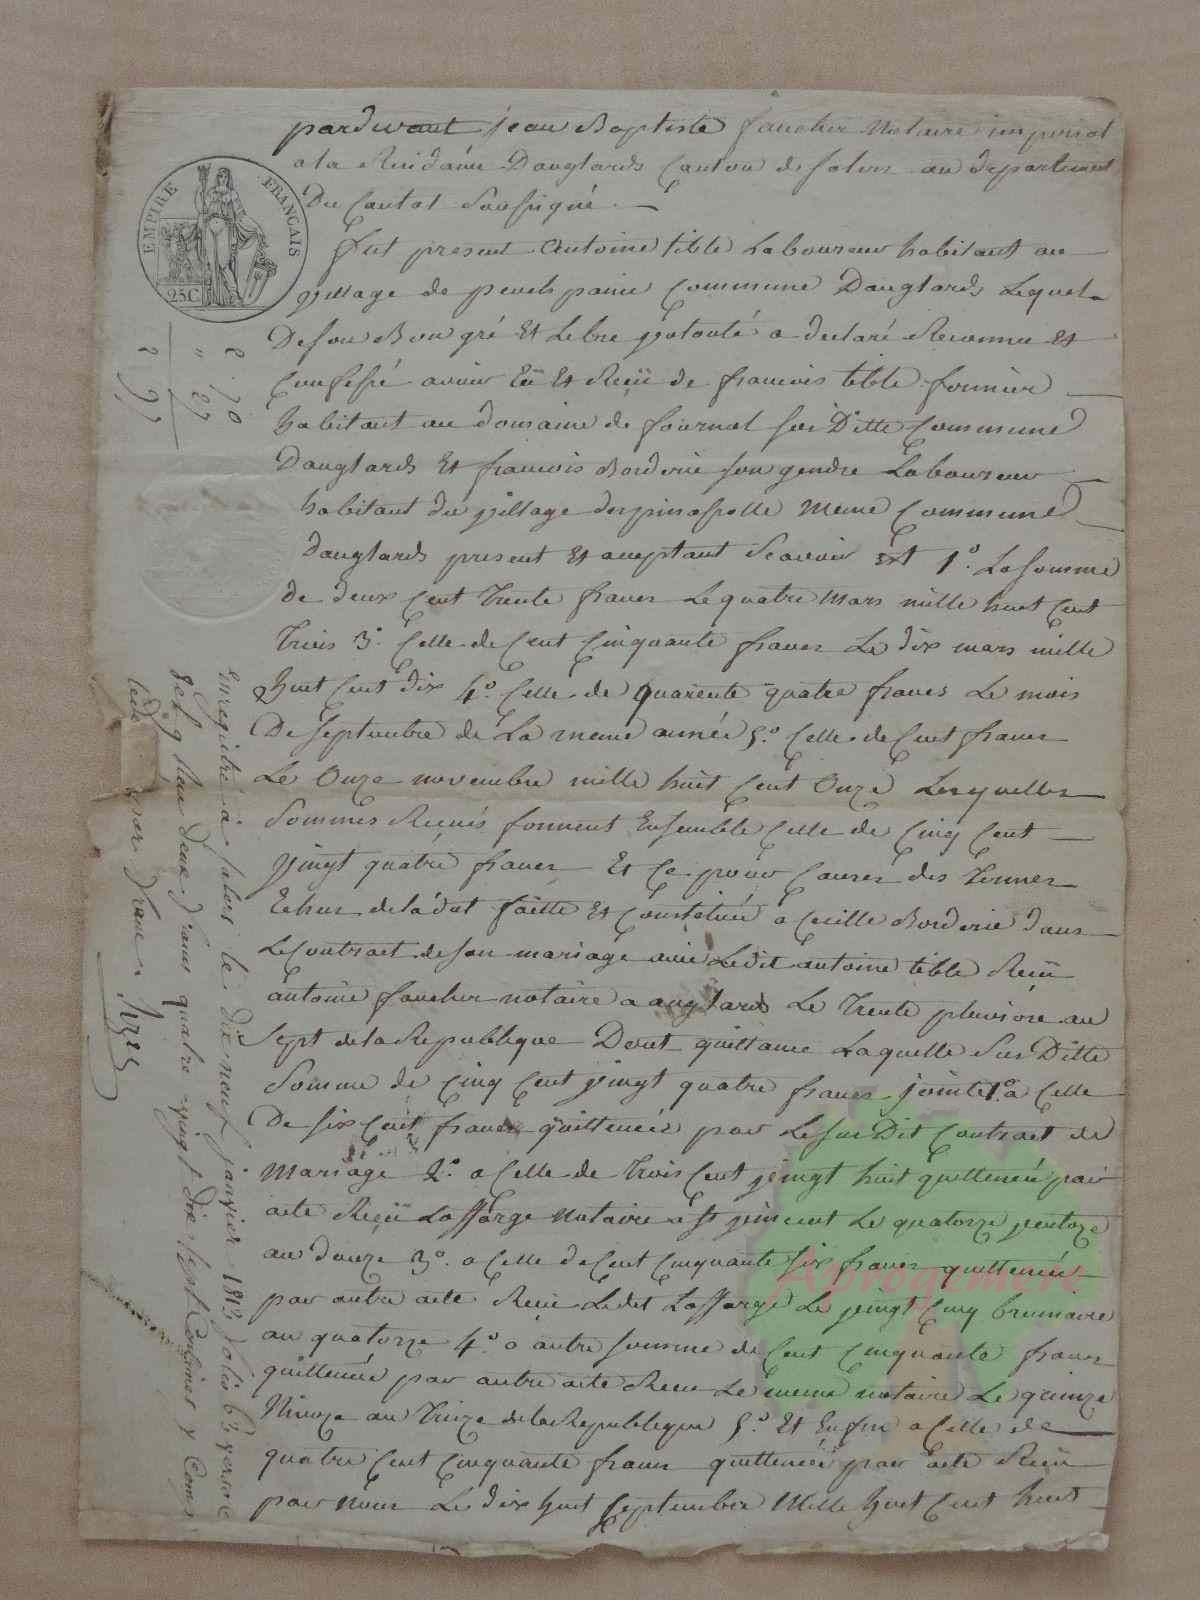 EMPIRE FRANÇAIS
25C
pardevant jean Baptiste faucher Notaire imperial
a la Residance Danglards Canton de salers au departement
Du Cantal Soussigné
fut present Antoine tible Laboureur habitant au
village de commune Danglards Lequel
De son Bon gré Et Libre vollonté a declaré Reconnu et
Confessé avoir Eü Et Reçü de francois tible fermier
habitant au domaine de fournol sus Ditte Commune
Danglards Et francois Borderie son gendre Laboureur
habitant du village meme Commune
danglards present et acceptant Scavoir Est 1º. La somme
de deux Cent trente francs Le quatre Mars mille huit Cent
trois 3º. Celle de Cent Cinquante francs Le dix mars mille
huit Cent dix 4º. Celle de quarente quatre francs Le mois
De septembre de La meme année 5º. Celle de Cent francs
Le Onze novembre mille huit Cent Onze Lesquelles
Sommes Reunis forment Ensemble Celle de Cinq Cent
vingt quatre francs Et Ce pour Causes des termes
Echus de la dot faitte Et Constituée a Cecille Borderie dans
Le Contrast de son mariage avec Ledit antoine tible Reçü
antoine faucher notaire a anglards Le trente pluviose an
sept de la Republique Dont quittance Laquelle Sus Ditte
Somme de Cinq Cent vingt quatre francs jointe 1º. a Celle
De six Cent francs quittencée par Le sus Dit Contract de
mariage 2º. a Celle de trois Cent vingt huit quittencée par
acte Reçü Lafforge Notaire a St vincent Le quatorze ventoze
an douze 3º. a Celle de Cent Cinquante six francs quittencée
par autre acte Reçu Ledit Lafforge Le vingt Cinq brumaire
an quatorze 4º. a autre somme de Cent Cinquante francs
quittencée par autre acte Reçu Le meme notaire Le quinze
Nivoze an treize de la Republique 5º. Et Enfin a Celle de
quatre Cent Cinquante francs quittencée par acte Reçü
par nous Le dix huit Septembre Mille huit Cent huit
2 70
" 27
2 97
Enregistré a salers le dix neuf janvier 1813 folio 63 verso C
7 et 8 Reçu deux francs quatre vingt dix sept Centimes y Compris
Aprogemere